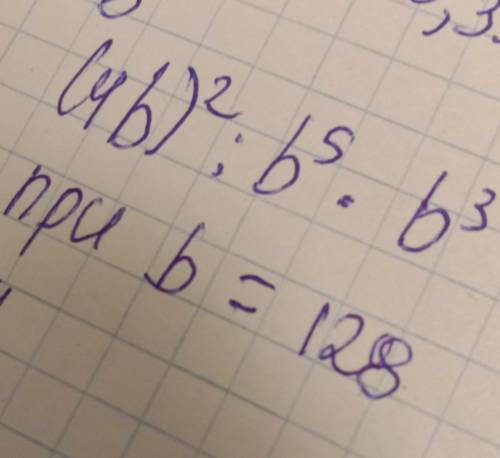 (4b)² : b⁵ · b³
при b = 128